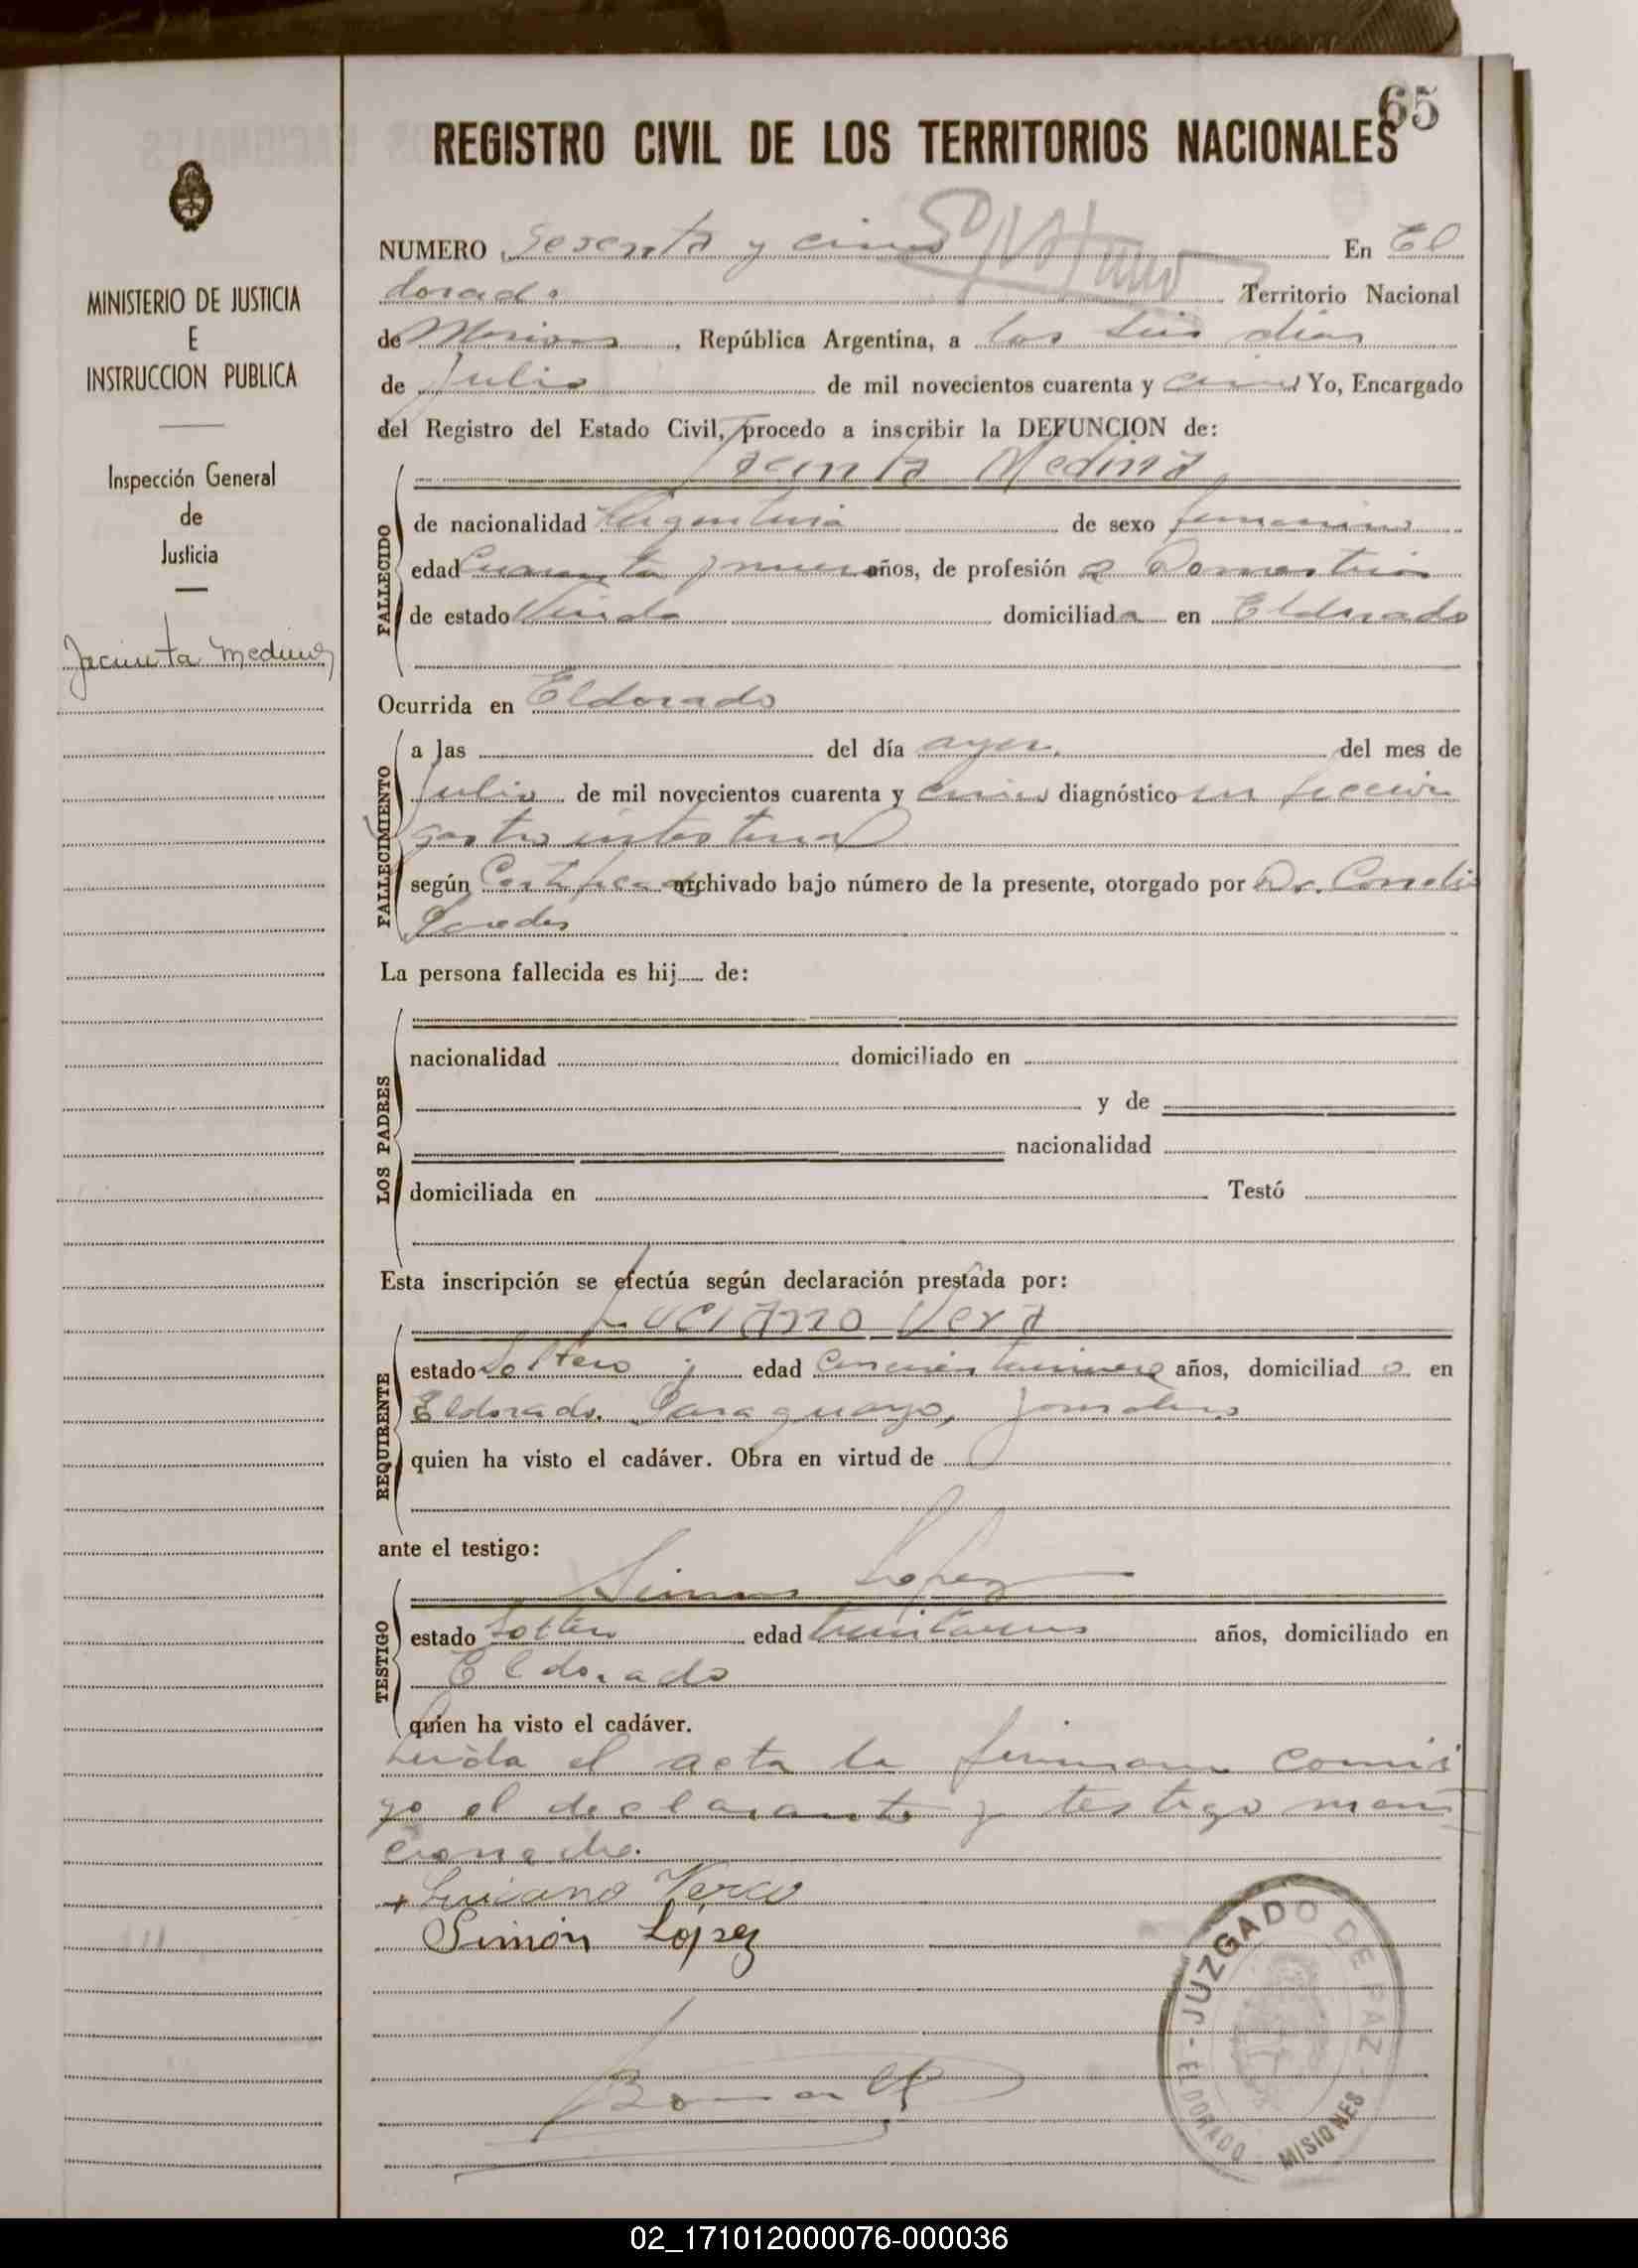 65
REGISTRO CIVIL DE LOS TERRITORIOS NACIONALES
MINISTERIO DE JUSTICIA
E
INSTRUCCION PUBLICA
Inspección General
de
Justicia
Jacinta Medina
NUMERO Sesenta y cinco En El
dorado Territorio Nacional
de Misiones, República Argentina, a los seis dias
de Julio de mil novecientos cuarenta y cinco Yo, Encargado
del Registro del Estado Civil, procedo a inscribir la DEFUNCION de:
Jacinta Medina
FALLECIDO
de nacionalidad Argentina de sexo femenino
edad Cuarenta y años, de profesión Domestica
de estado Viuda domiciliada en Eldorado
Ocurrida en Eldorado
FALLECIMIENTO
a las del día ayer del mes de
Julio de mil novecientos cuarenta y cinco diagnóstico infeccion
gastro intestinal
según Certificado archivado bajo número de la presente, otorgado por Dr.
Paredes
La persona fallecida es hij de:
LOS PADRES
nacionalidad domiciliado en
y de
nacionalidad
domiciliada en Testó
Esta inscripción se efectúa según declaración prestada por:
Luciano Vera
REQUIRENTE
estado Soltero edad años, domiciliado en
Eldorado, Paraguayo, Jornalero
quien ha visto el cadáver. Obra en virtud de
ante el testigo:
Simon Lopez
TESTIGO
estado Soltero edad años, domiciliado en
Eldorado
quien ha visto el cadáver.
Leida el acta la firman conmi
go el declarante y testigo men
cionado.
Luciano Vera
Simón López
JUZGADO DE PAZ - ELDORADO - MISIONES
02_171012000076-000036